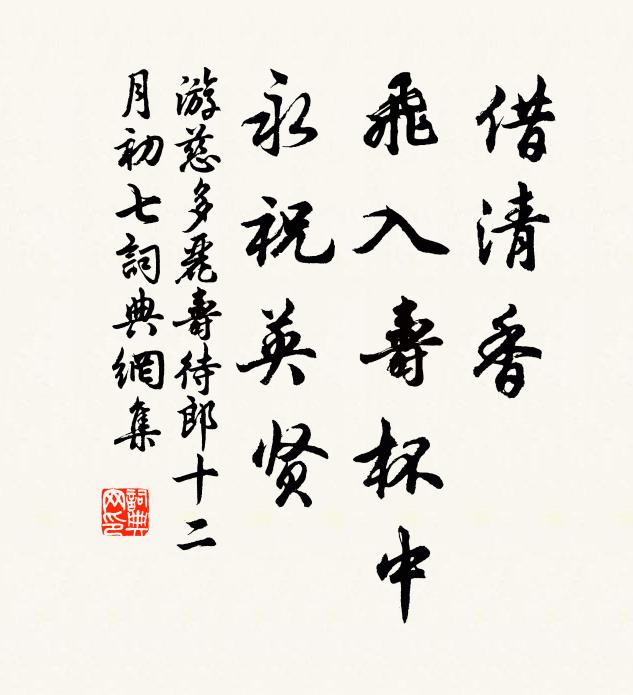 借清香
飛入壽杯中
永祝英贤
游慈多麗壽待郎十二
月初七詞典網集
詞典网印